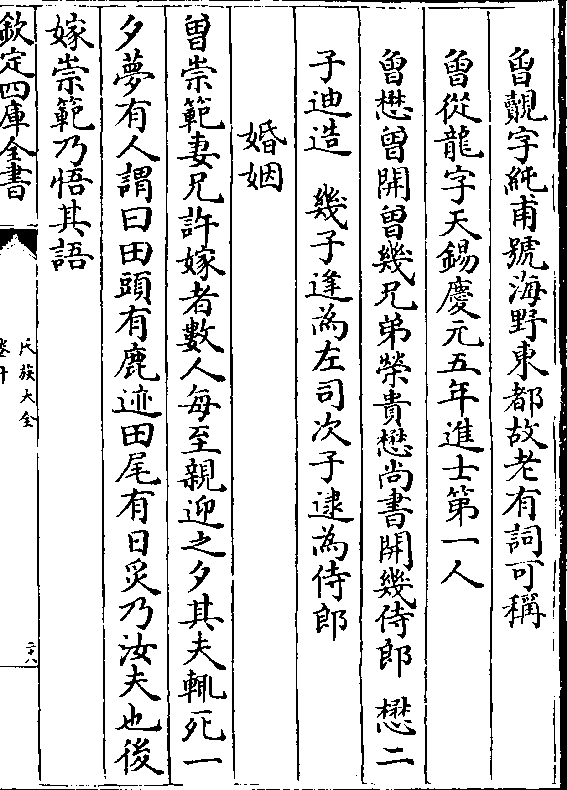 曾覿字純甫號海野東都故老有詞可稱
曾從龍字天錫慶元五年進士第一人
曾懋曾開曾幾兄弟榮貴懋尚書開幾侍郎 懋二
子迪造 幾子逢為左司次子逮為侍郎
婚姻
曾崇範妻兄許嫁者數人每至親迎之夕其夫輒死一
夕夢有人謂曰田頭有鹿迹田尾有日炙乃汝夫也後
嫁崇範乃悟其語
欽定四庫全書
氏族大全